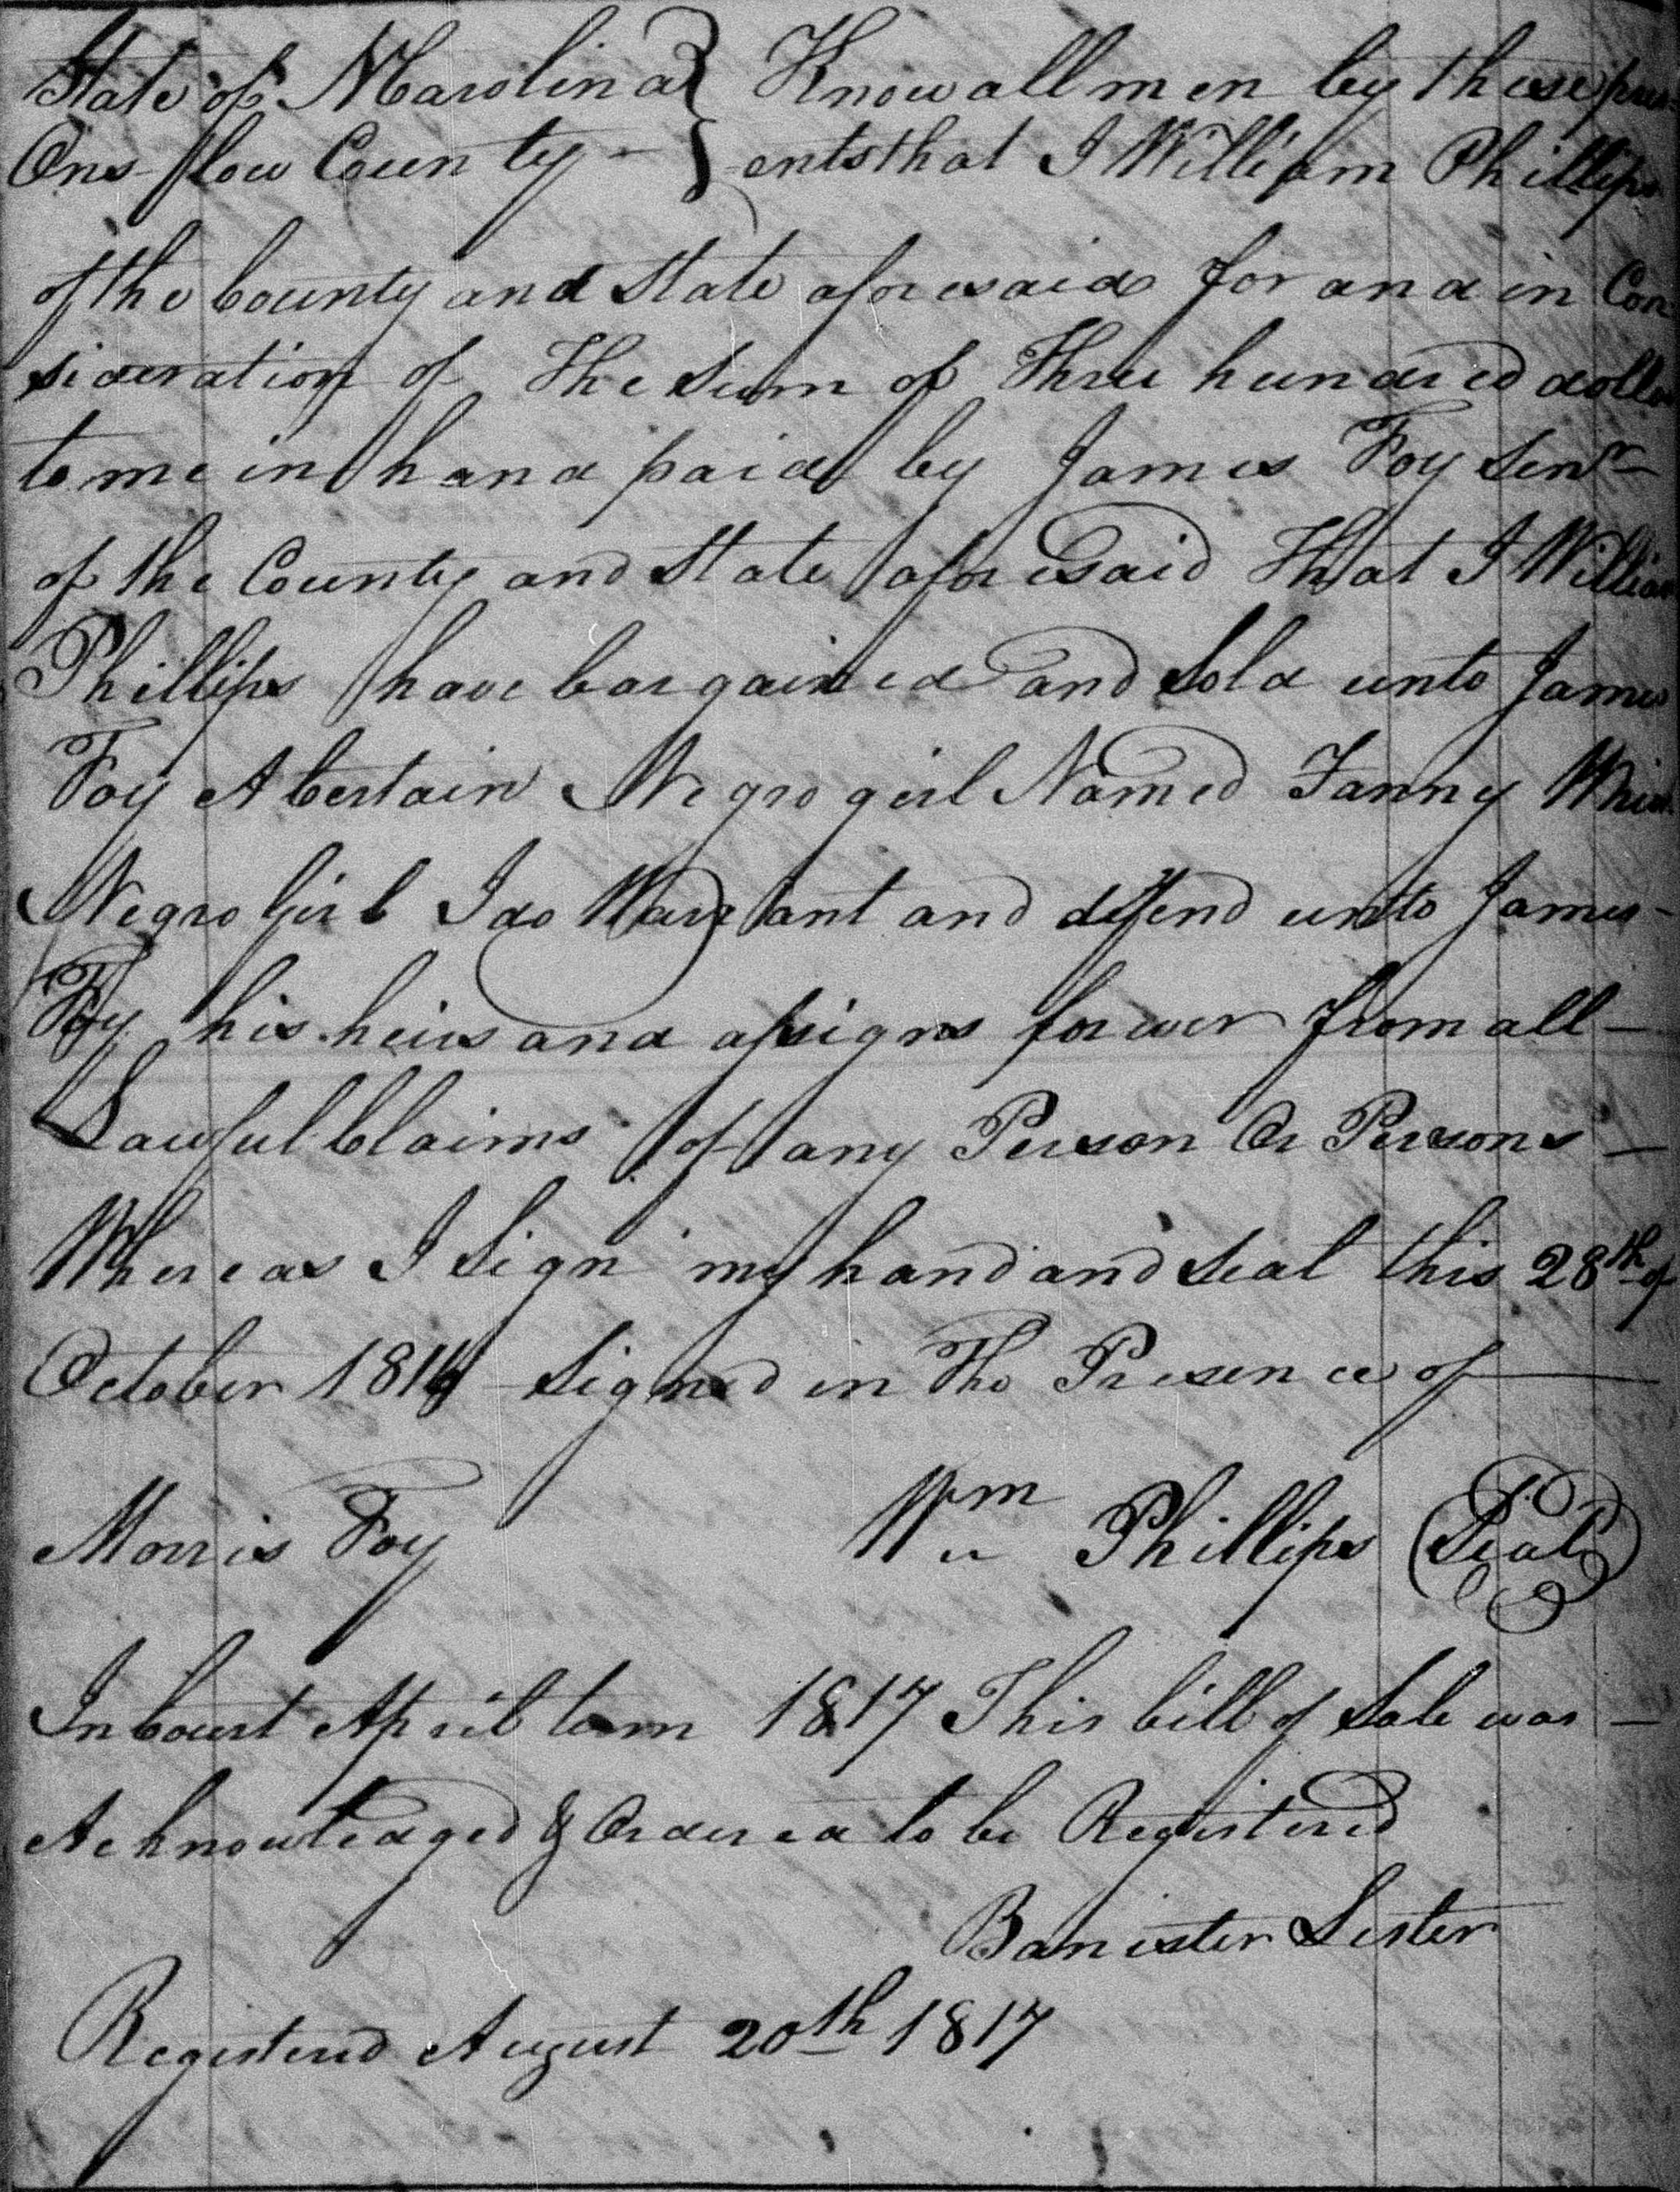 State of N Carolina } Know all men by these pres
Onslow County - } ents that I William Phillips
of the County and State aforesaid for and in Con
sideration of The Sum of Three hundred dolla
to me in hand paid by James Foy Senr
of the County and State aforesaid That I William
Phillips have bargained and Sold unto James
Foy A Certain Negro girl Named Fanny Which
Negro Girl I do Warrant and defend unto James
Foy his heirs and assigns forever from all
Lawful Claims of any Person Or Persons
Whereas I Sign my hand and Seal this 28th of
October 1816 Signed in The Presence of
Morris Foy Wm Phillips (Seal)
In Court April term 1817 This bill of Sale was
Acknowledged & Ordered to be Registered
Banister Lester
Registered August 20th 1817